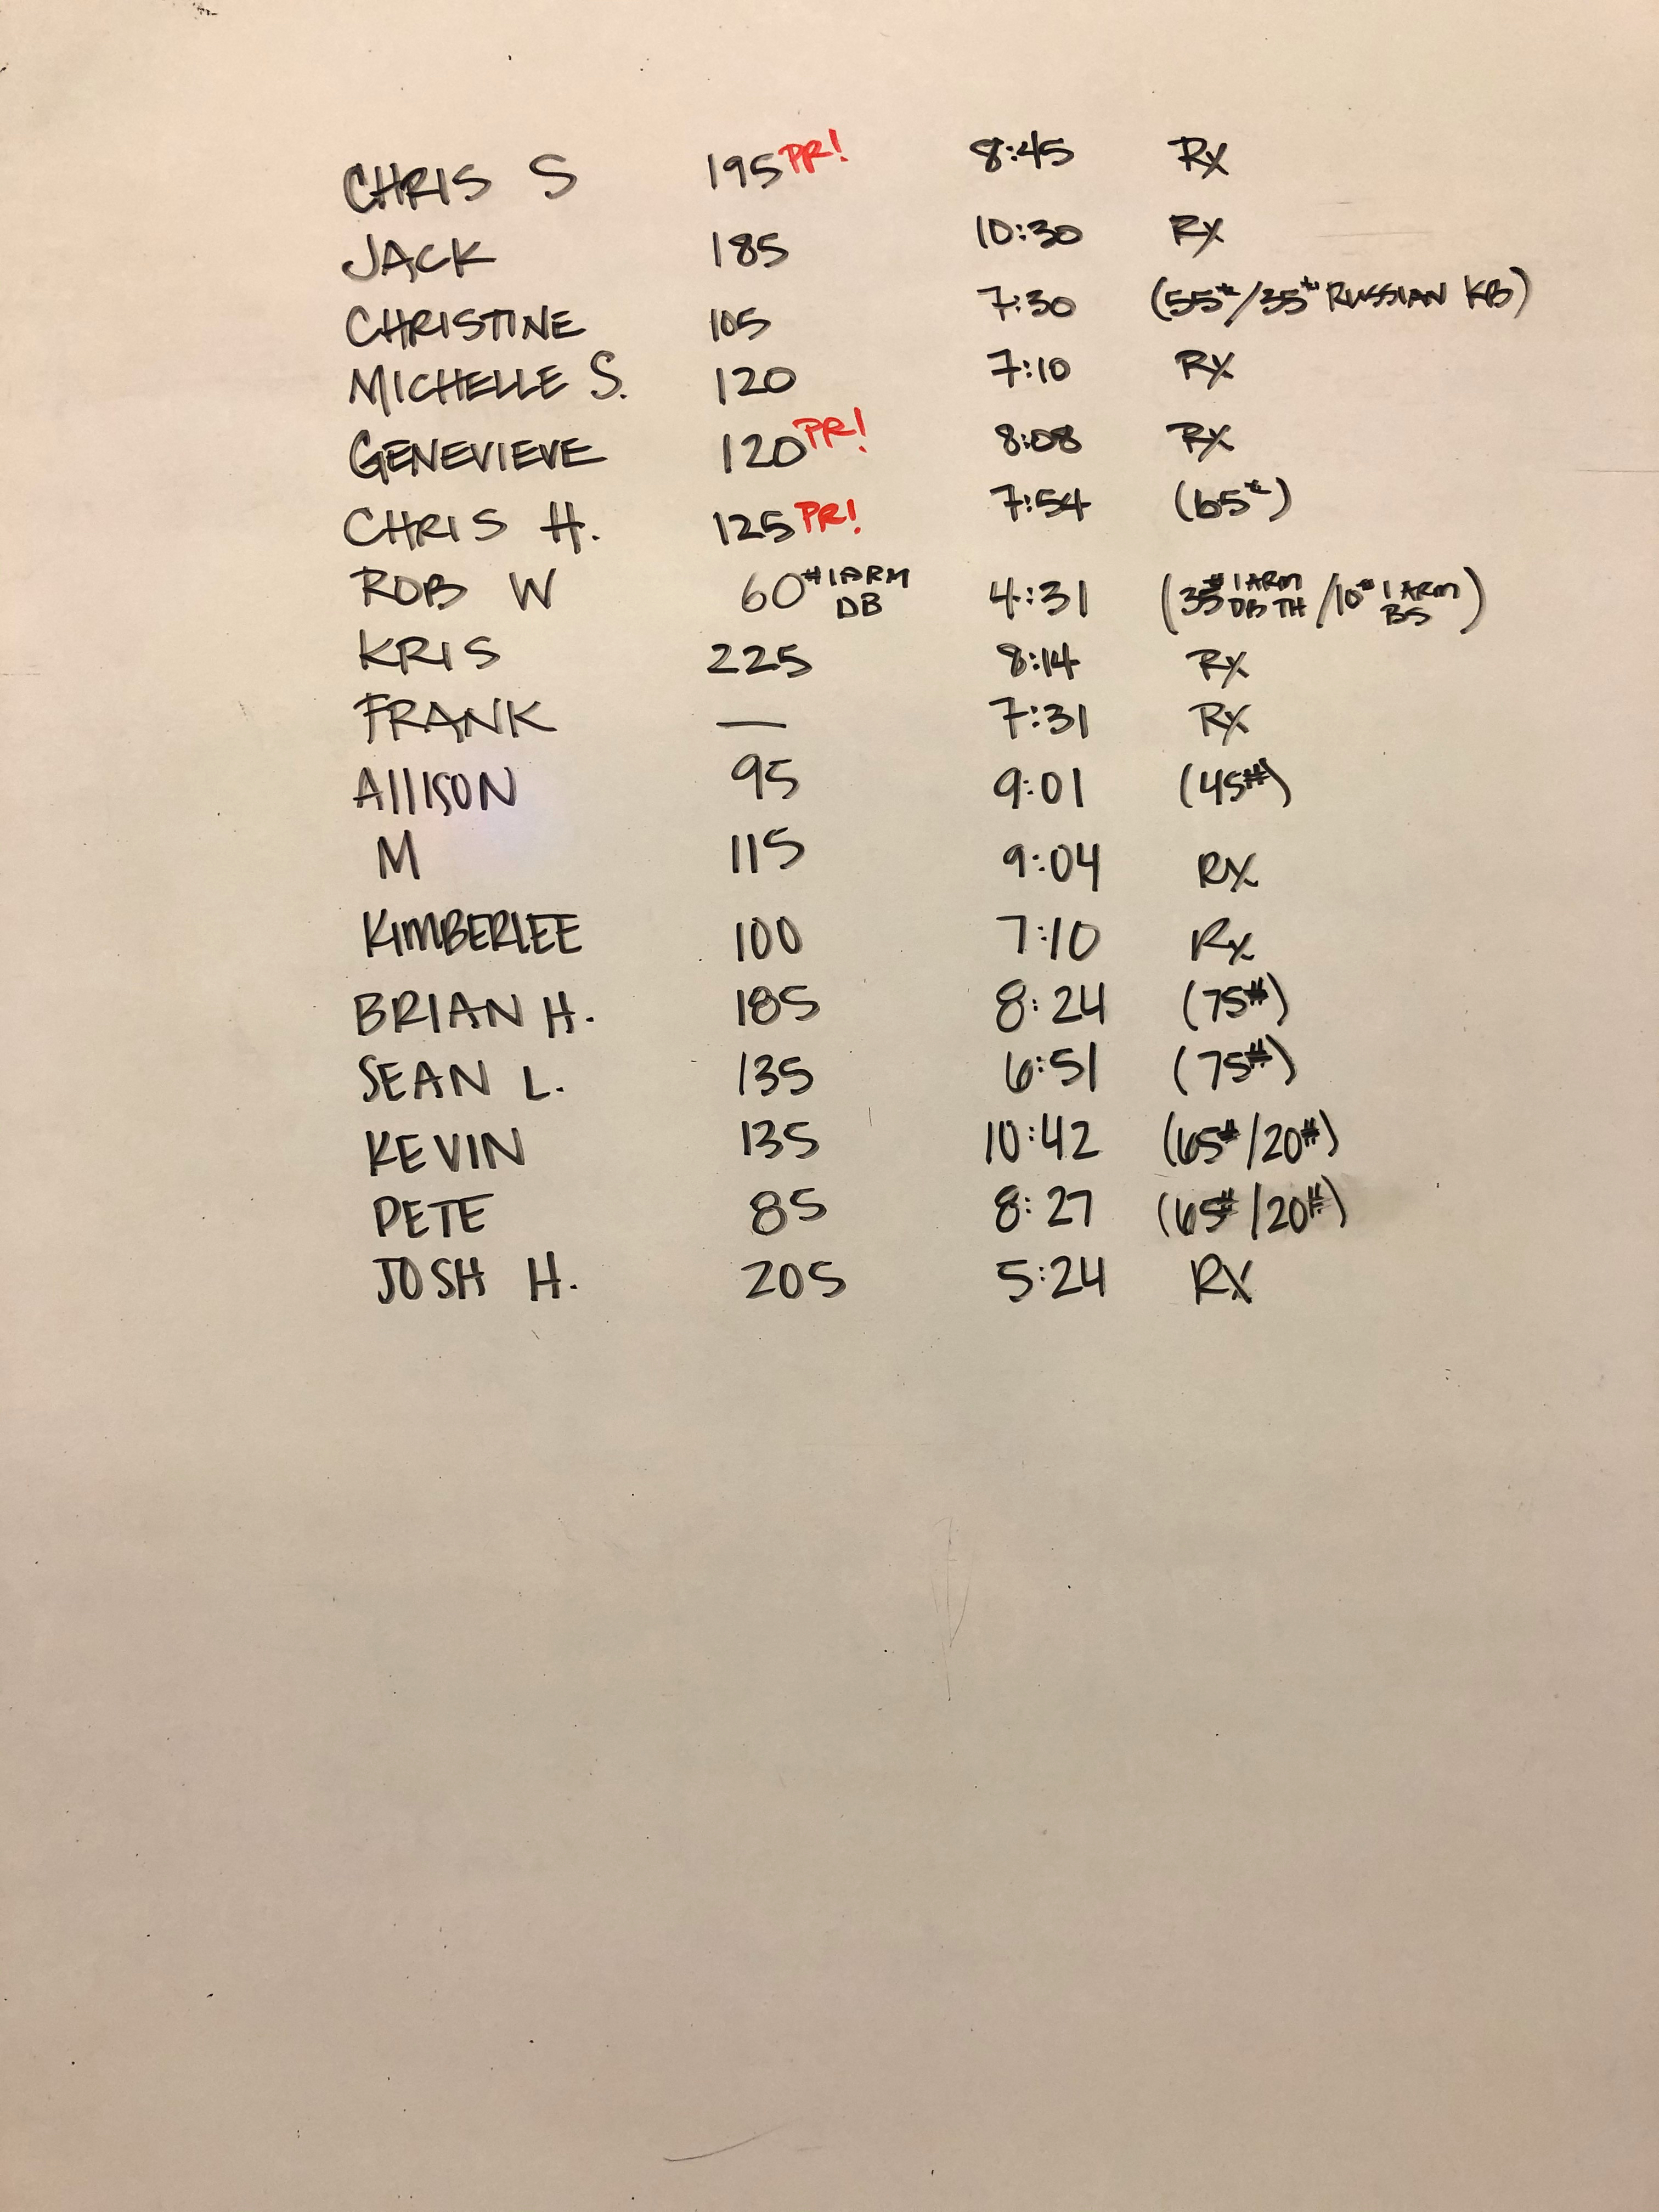 CHRIS S 195 PR! 8:45 Rx
JACK 185 10:30 Rx
CHRISTINE 105 7:30 (55#/35# RUSSIAN KB)
MICHELLE S. 120 7:10 Rx
GENEVIEVE 120 PR! 8:08 Rx
CHRIS H. 125 PR! 7:54 (65#)
ROB W 60# 1 ARM DB 4:31 (35# 1 ARM DB TH/10# 1 ARM BS)
KRIS 225 8:14 Rx
FRANK — 7:31 Rx
AllISON 95 9:01 (45#)
M 115 9:04 RX
KIMBERLEE 100 7:10 Rx
BRIAN H. 185 8:24 (75#)
SEAN L. 135 6:51 (75#)
KEVIN 135 10:42 (65#/20#)
PETE 85 8:27 (65#/20#)
JOSH H. 205 5:24 RX